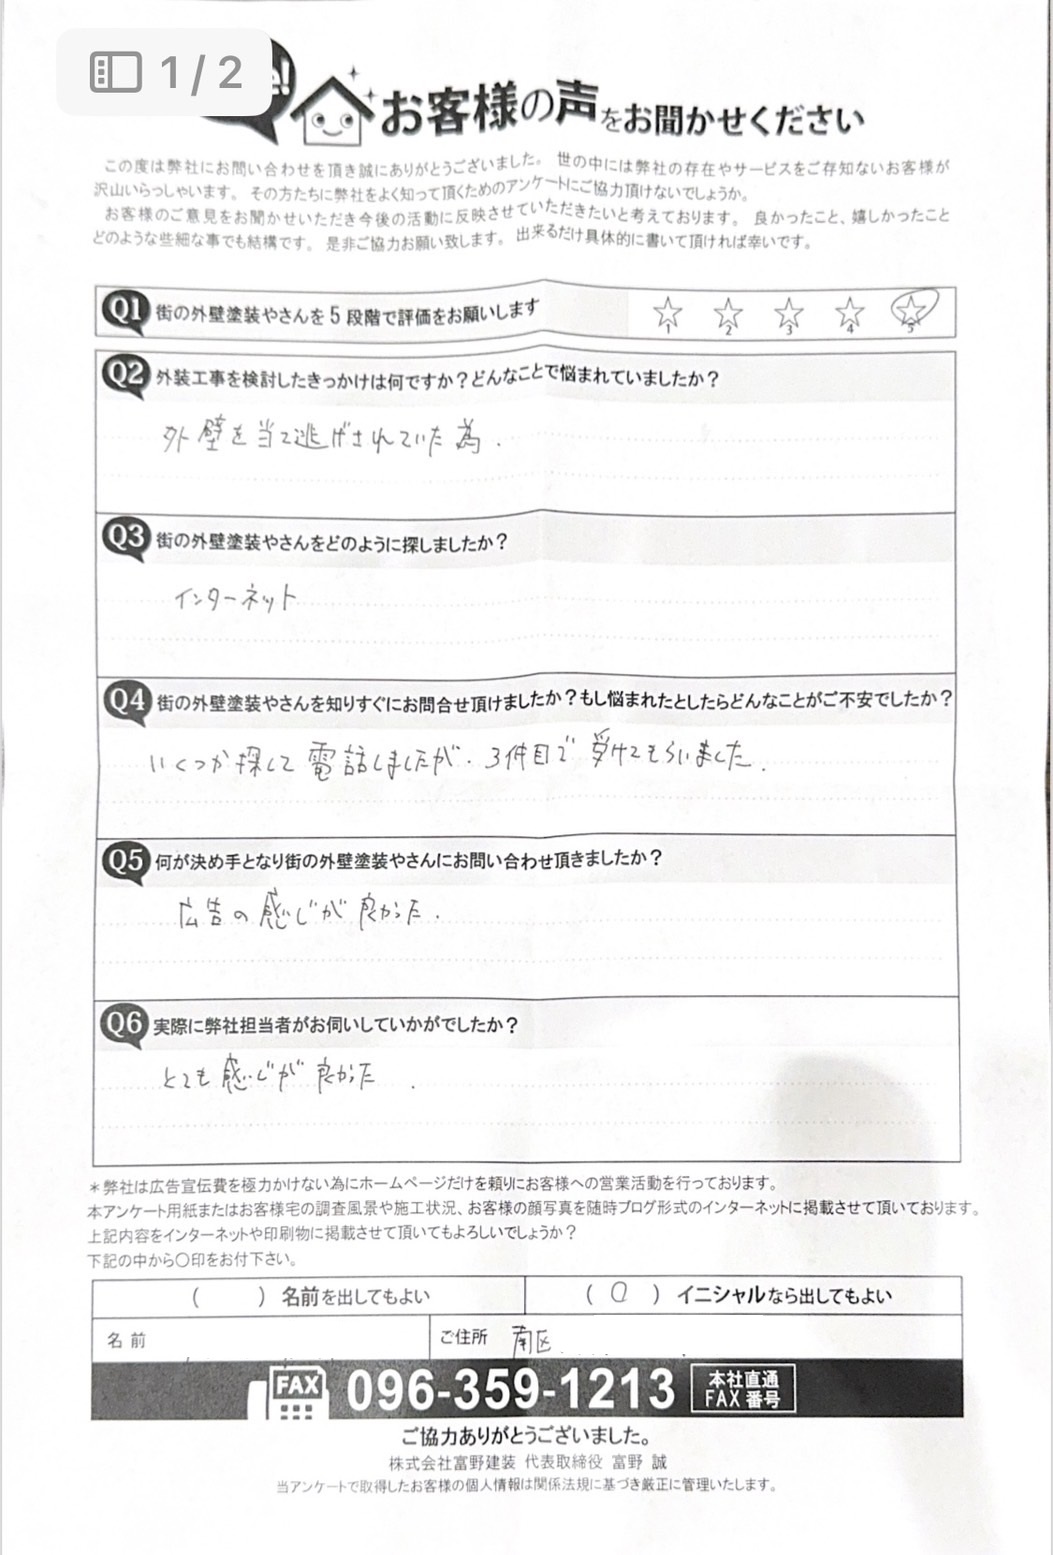 1/2
e!
お客様の声をお聞かせください
この度は弊社にお問い合わせを頂き誠にありがとうございました。 世の中には弊社の存在やサービスをご存知ないお客様が
沢山いらっしゃいます。 その方たちに弊社をよく知って頂くためのアンケートにご協力頂けないでしょうか。
お客様のご意見をお聞かせいただき今後の活動に反映させていただきたいと考えております。 良かったこと、嬉しかったこと
どのような些細な事でも結構です。 是非ご協力お願い致します。 出来るだけ具体的に書いて頂ければ幸いです。
Q1 街の外壁塗装やさんを5段階で評価をお願いします ☆1 ☆2 ☆3 ☆4 ☆5
Q2 外装工事を検討したきっかけは何ですか?どんなことで悩まれていましたか?
外壁を当て逃げされていた為.
Q3 街の外壁塗装やさんをどのように探しましたか?
インターネット
Q4 街の外壁塗装やさんを知りすぐにお問合せ頂けましたか?もし悩まれたとしたらどんなことがご不安でしたか?
いくつか探して電話しましたが、3件目で受けてもらいました.
Q5 何が決め手となり街の外壁塗装やさんにお問い合わせ頂きましたか?
広告の感じが良かった.
Q6 実際に弊社担当者がお伺いしていかがでしたか?
とても感じが良かった.
*弊社は広告宣伝費を極力かけない為にホームページだけを頼りにお客様への営業活動を行っております。
本アンケート用紙またはお客様宅の調査風景や施工状況、お客様の顔写真を随時ブログ形式のインターネットに掲載させて頂いております。
上記内容をインターネットや印刷物に掲載させて頂いてもよろしいでしょうか?
下記の中から〇印をお付下さい。
( ) 名前を出してもよい (○) イニシャルなら出してもよい
名前 ご住所 南区
FAX 096-359-1213 本社直通
FAX番号
ご協力ありがとうございました。
株式会社富野建装 代表取締役 富野 誠
当アンケートで取得したお客様の個人情報は関係法規に基づき厳正に管理いたします。